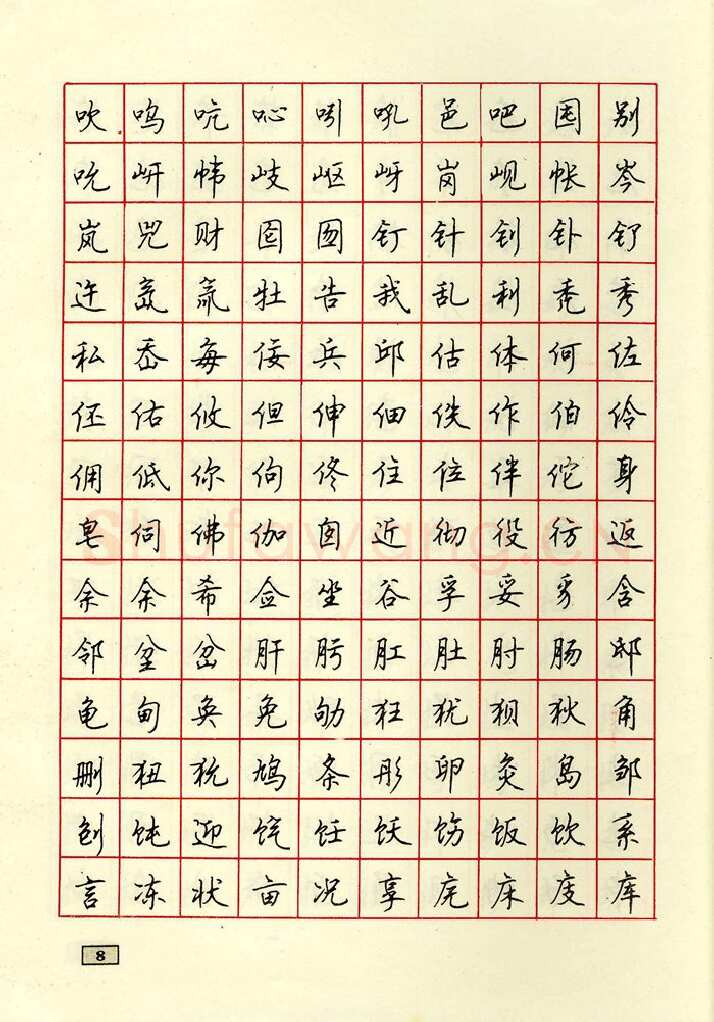 吹呜吭吣吲吼邑吧囤别
吮岍帏岐岖岈岗岘帐岑
岚兕财囵囫钉针钊钋钌
迕氙氚牡告我乱利秃秀
私岙每佞兵邱估体何佐
伾佑攸但伸佃佚作伯伶
佣低你佝佟住位伴佗身
皂伺佛伽囱近彻役彷返
佘余希佥坐谷孚妥豸含
邻坌岔肝肟肛肚肘肠邸
龟甸奂免劬狂犹狈狄角
删狃狁鸠条彤卵灸岛邹
刨饨迎饩饪饫饬饭饮系
言冻状亩况亨庑床庋库
8
Shufawang.cn